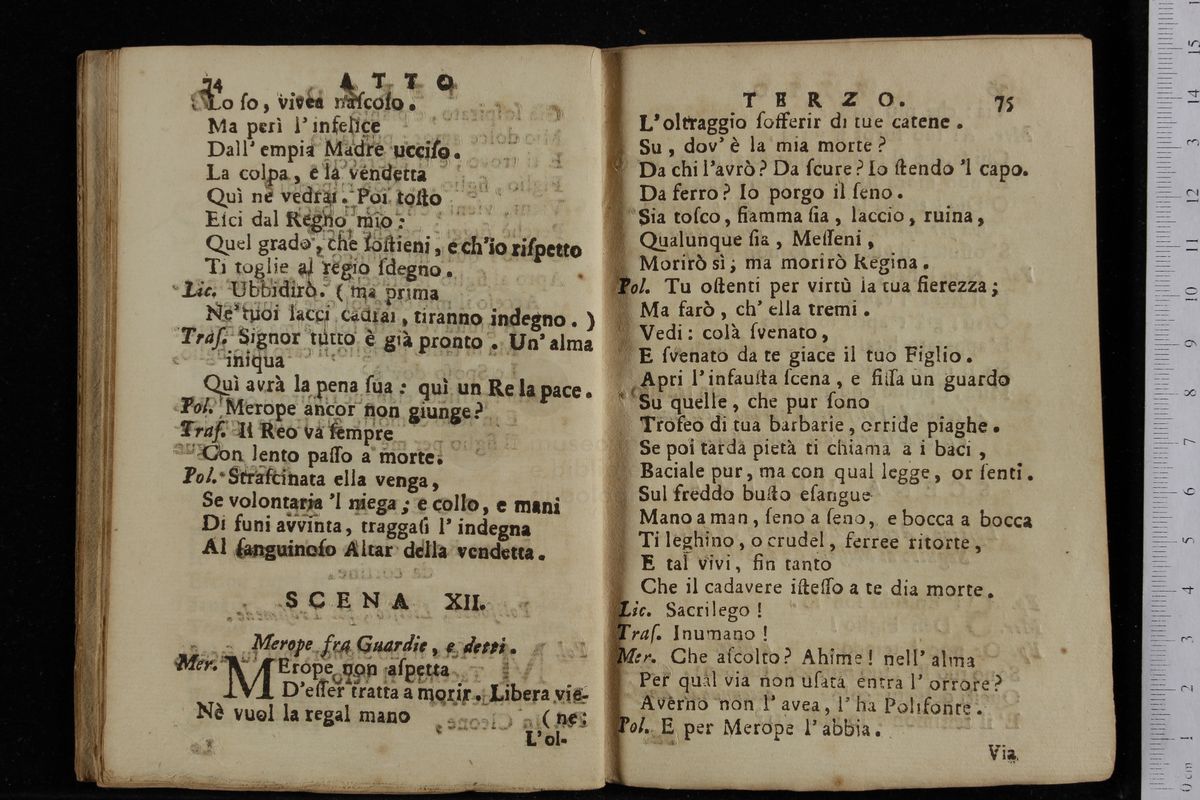 74 ATTO
Lo ſo, vivea naſcoſo.
Ma perì l'infelice
Dall'empia Madre ucciſo.
La colpa, e la vendetta
Quì ne vedrai. Poi toſto
Eſci dal Regno mio:
Quel grado, che ſoſtieni, e ch'io riſpetto
Ti toglie al regio ſdegno.
Lic. Ubbidirò. (ma prima
Ne' tuoi lacci cadrai, tiranno indegno.)
Traſ. Signor tutto è già pronto. Un'alma
iniqua
Quì avrà la pena ſua: quì un Re la pace.
Pol. Merope ancor non giunge?
Traſ. Il Reo va ſempre
Con lento paſſo a morte.
Pol. Straſcinata ella venga,
Se volontaria 'l niega; e collo, e mani
Di funi avvinta, traggaſi l'indegna
Al ſanguinoſo Altar della vendetta.
SCENA XII.
Merope fra Guardie, e detti.
Mer. MErope non aſpetta
D'eſſer tratta a morir. Libera vie-
Nè vuol la regal mano (ne;
L'ol-
TERZO. 75
L'oltraggio ſofferir di tue catene.
Su, dov'è la mia morte?
Da chi l'avrò? Da ſcure? Io ſtendo 'l capo.
Da ferro? Io porgo il ſeno.
Sia toſco, fiamma ſia, laccio, ruina,
Qualunque ſia, Meſſeni,
Morirò sì; ma morirò Regina.
Pol. Tu oſtenti per virtù la tua fierezza;
Ma farò, ch'ella tremi.
Vedi: colà ſvenato,
E ſvenato da te giace il tuo Figlio.
Apri l'infauſta ſcena, e fiſſa un guardo
Su quelle, che pur ſono
Trofeo di tua barbarie, orride piaghe.
Se poi tarda pietà ti chiama a i baci,
Baciale pur, ma con qual legge, or ſenti.
Sul freddo buſto eſangue
Mano a man, ſeno a ſeno, e bocca a bocca
Ti leghino, o crudel, ferree ritorte,
E tal vivi, fin tanto
Che il cadavere iſteſſo a te dia morte.
Lic. Sacrilego!
Traſ. Inumano!
Mer. Che aſcolto? Ahime! nell'alma
Per qual via non uſata entra l'orrore?
Averno non l'avea, l'ha Polifonte.
Pol. E per Merope l'abbia.
Via